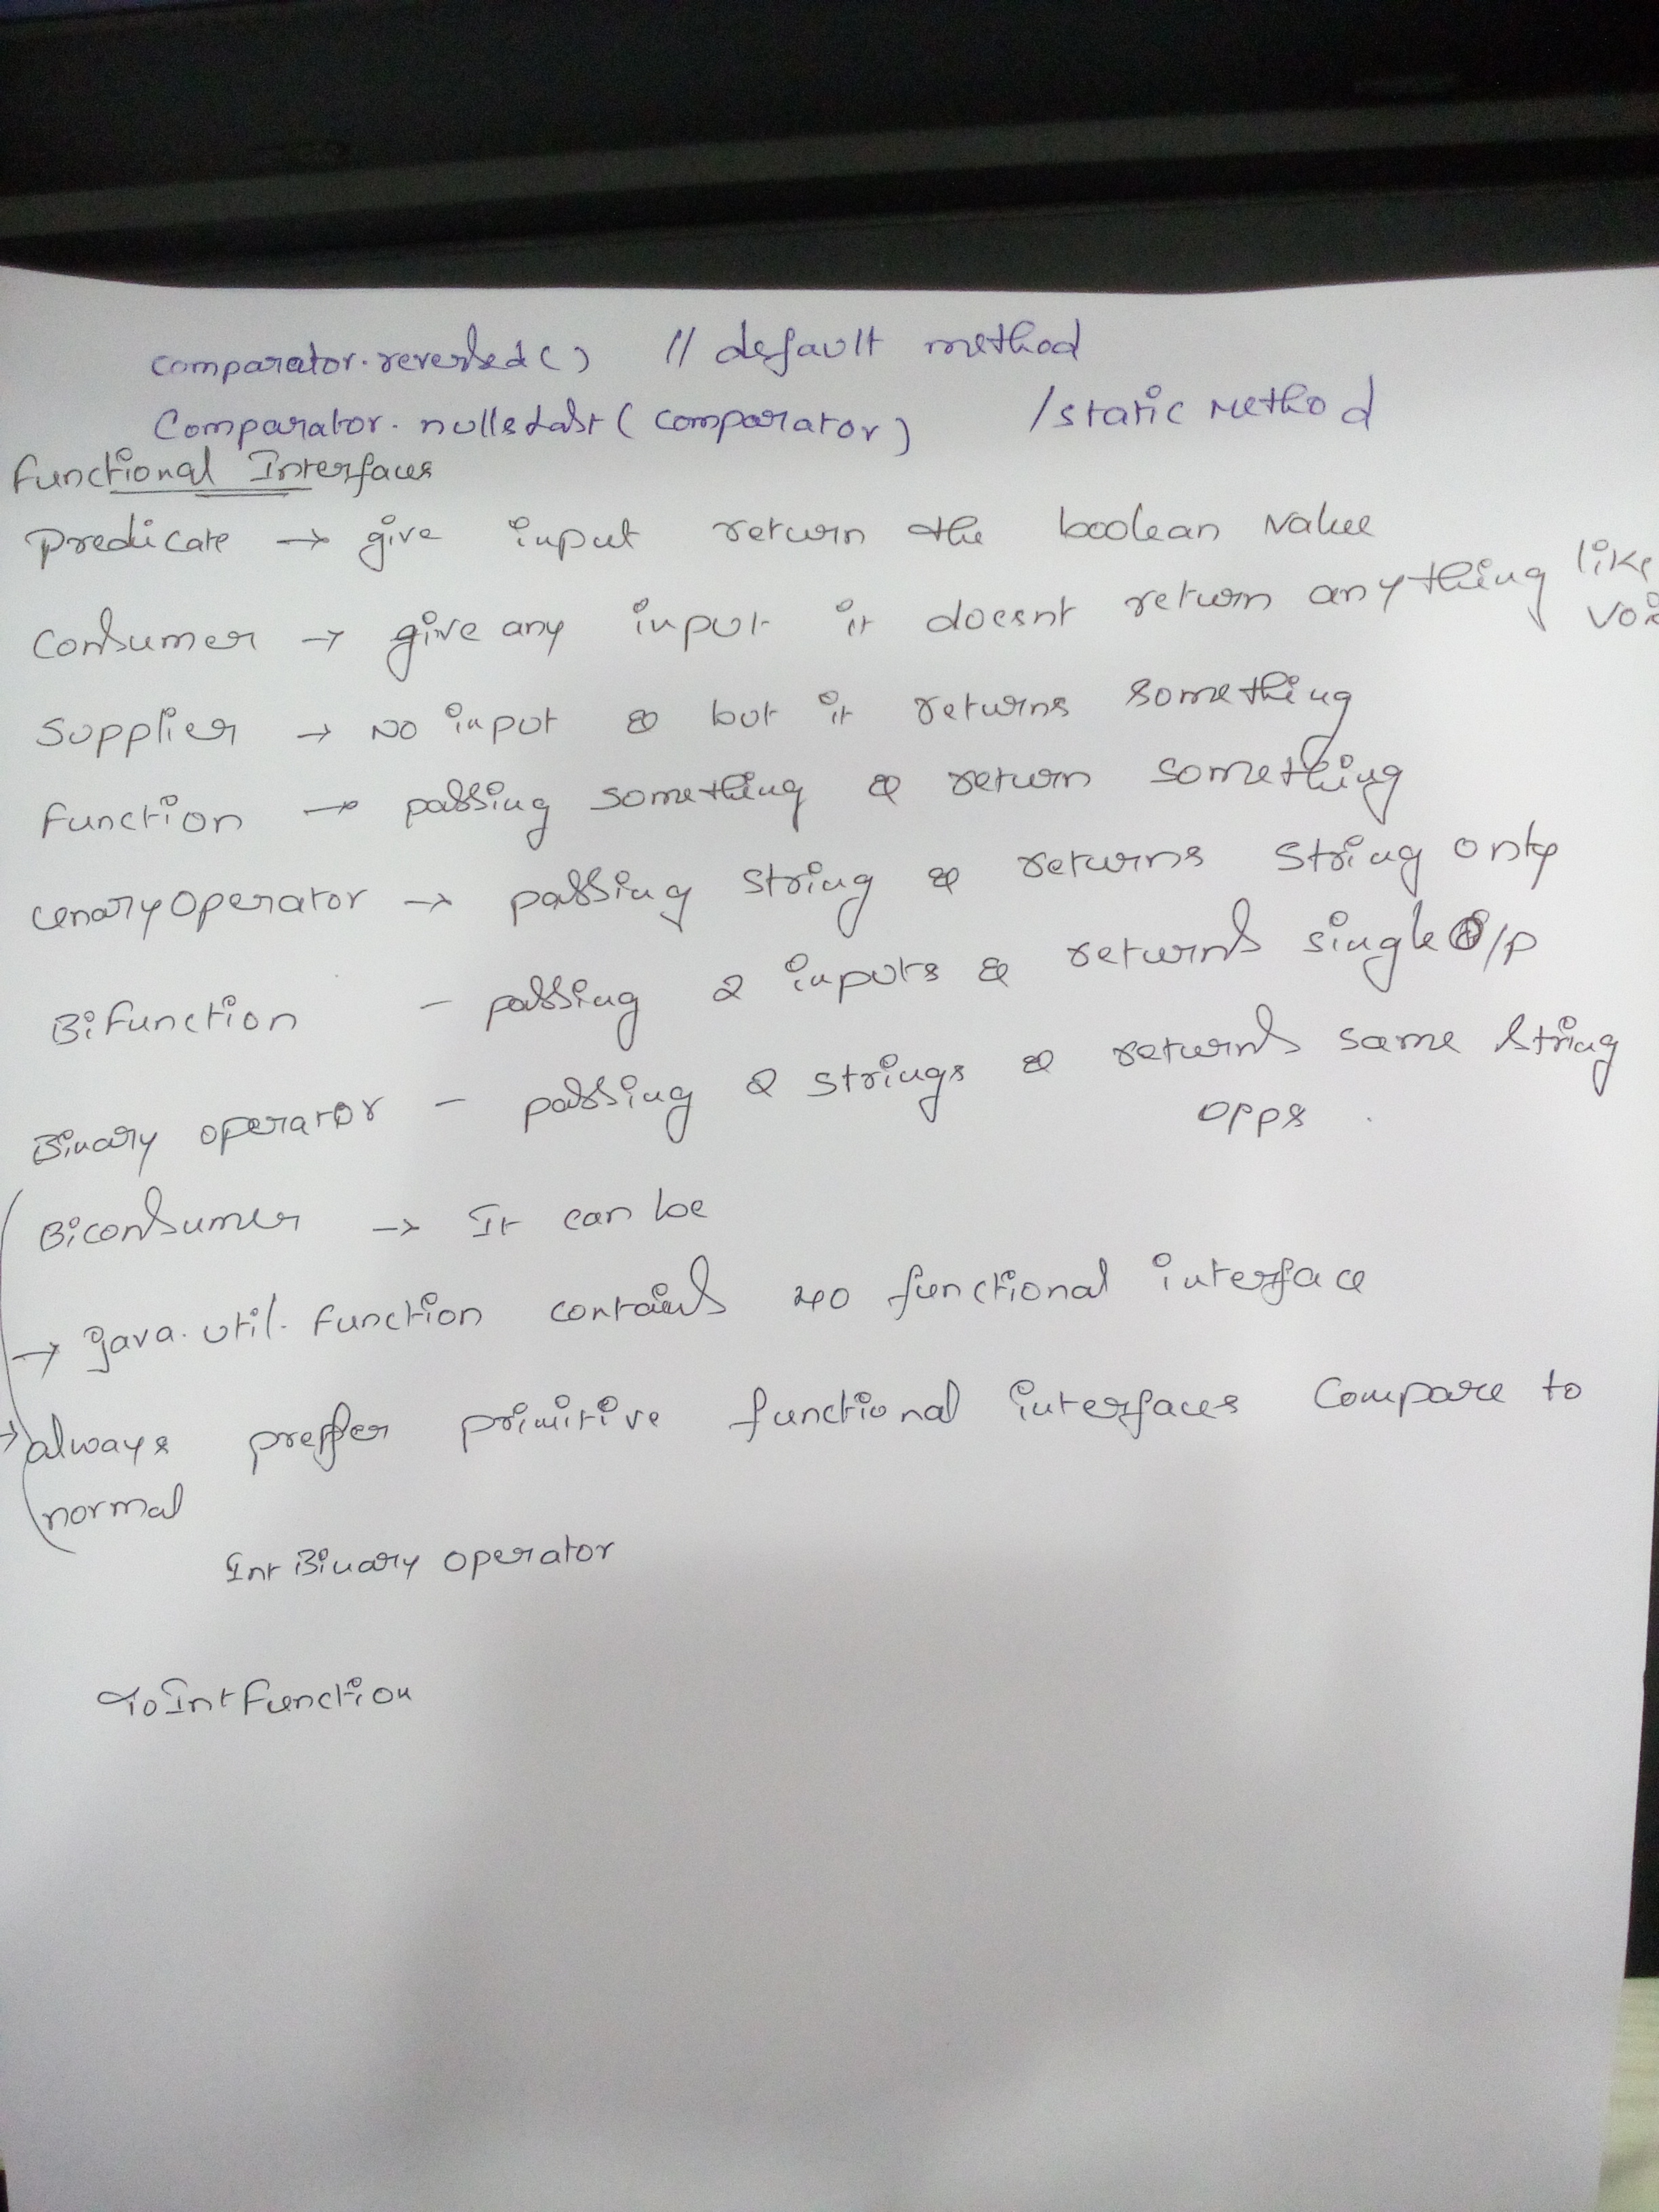 comparator.reversed() // default method
Comparator.nullsLast(comparator) /static Method
Functional Interfaces
Predicate → give input return the boolean value
Consumer → give any input it doesnt return anything like
voi
Supplier → No input & but it returns something
Function → passing something & return something
UnaryOperator → passing string & returns string only
BiFunction - passing 2 inputs & returns single o/p
Binary operator - passing 2 strings & returns same string
opps
Biconsumer → It can be
→ java.util.function contains 40 functional interface
→ always preffer primitive functional interfaces compare to
normal
Int Binary operator
ToIntFunction